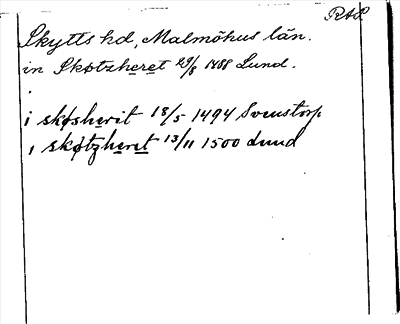 RAP
Skytts hd, Malmöhus län.
in Skøtzheret 29/8 1488 Lund.
i skøsherit 18/5 1494 Svenstorp
, skøtzheret 13/11 1500 Lund